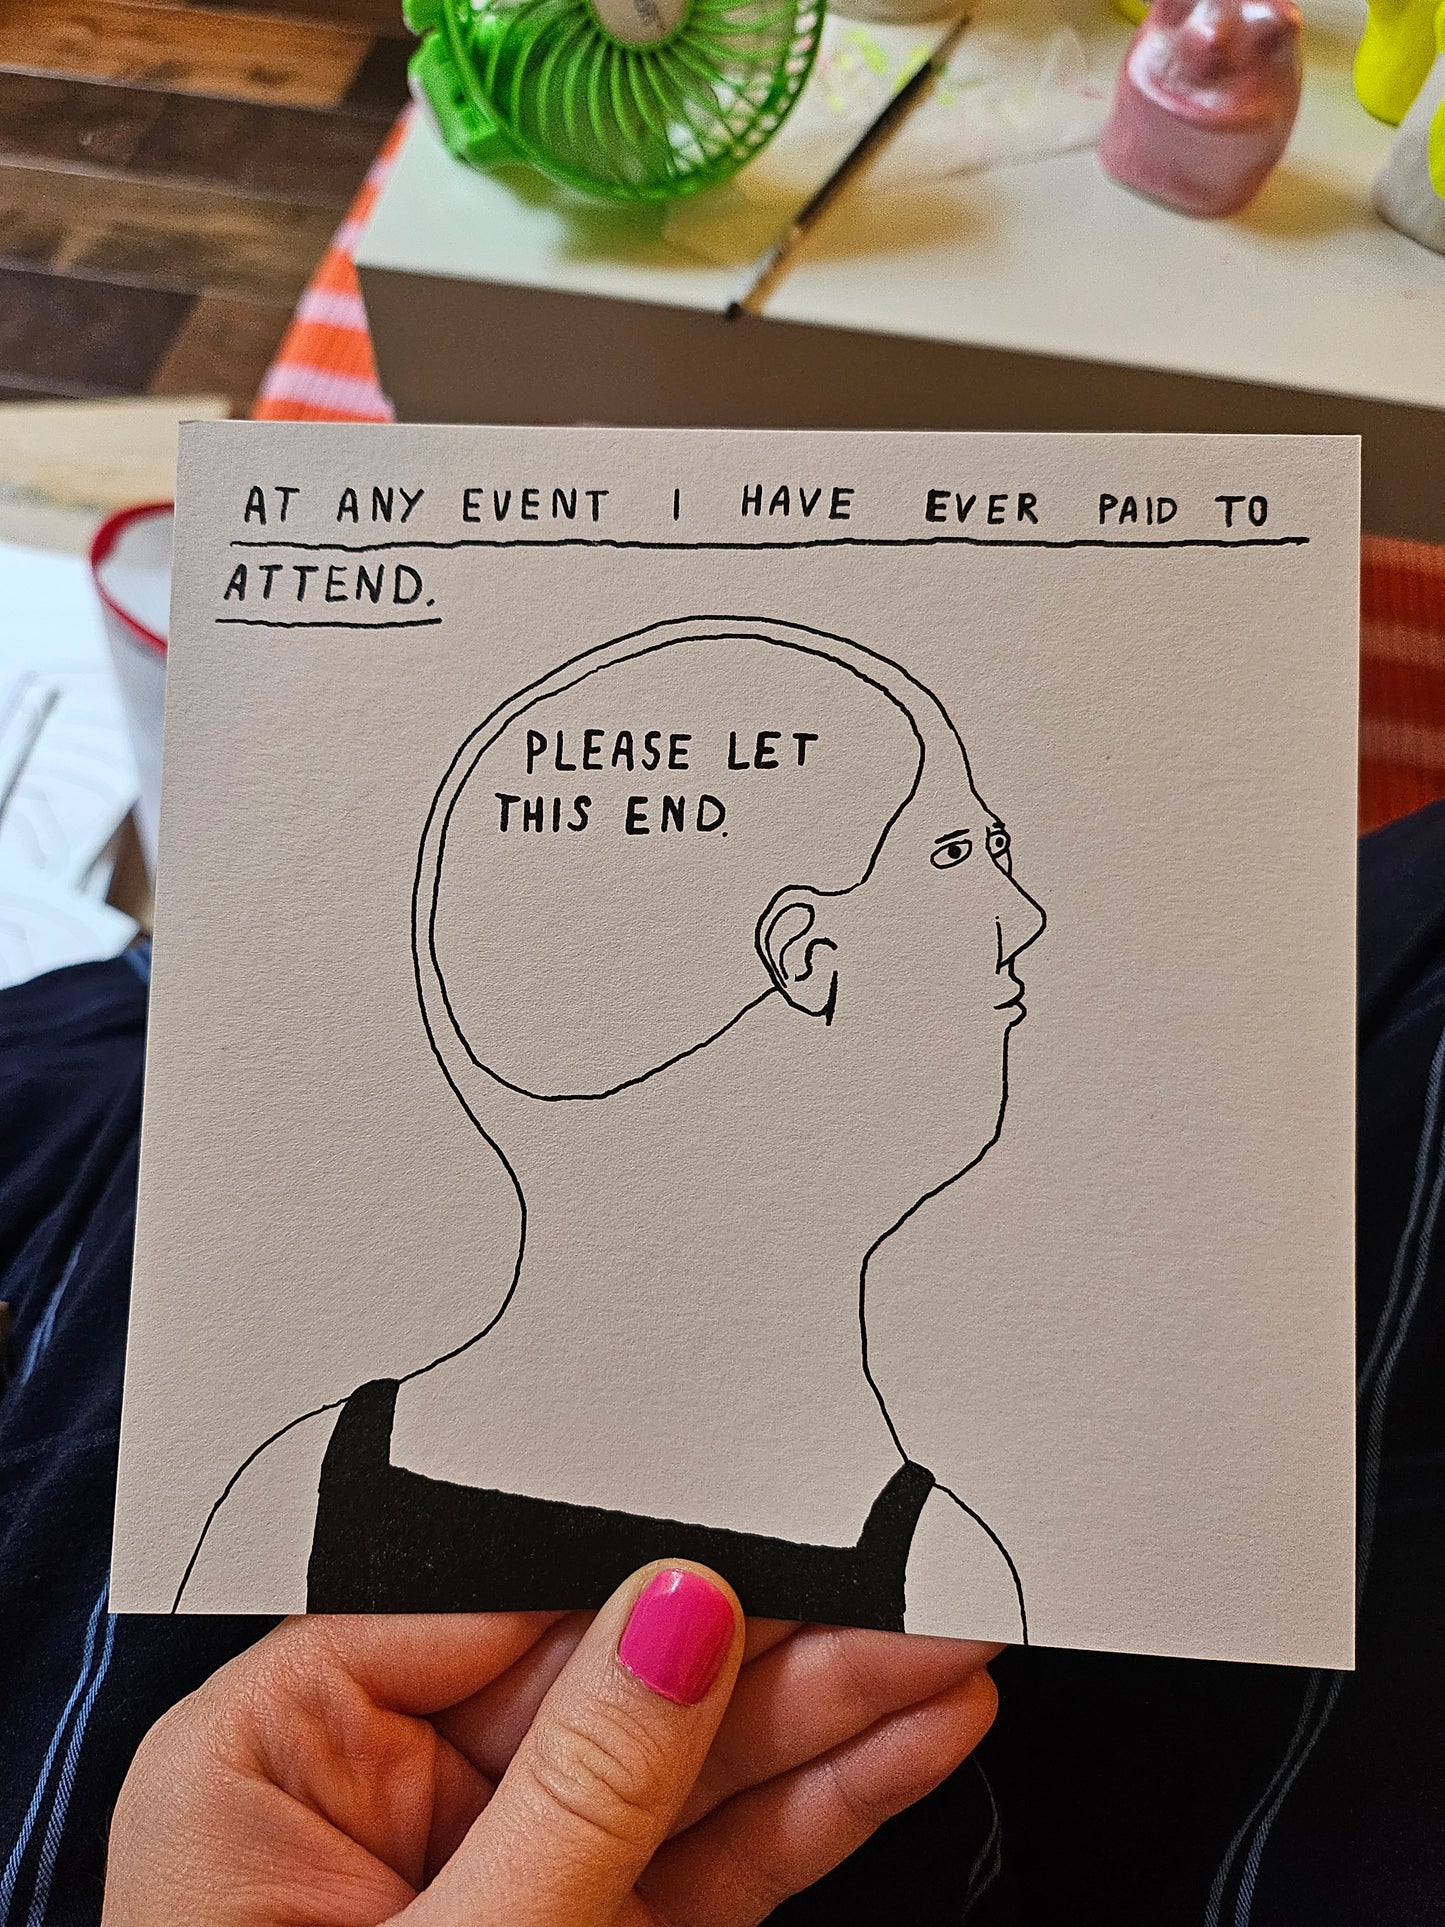 AT ANY EVENT I HAVE EVER PAID TO
ATTEND.
PLEASE LET
THIS END.